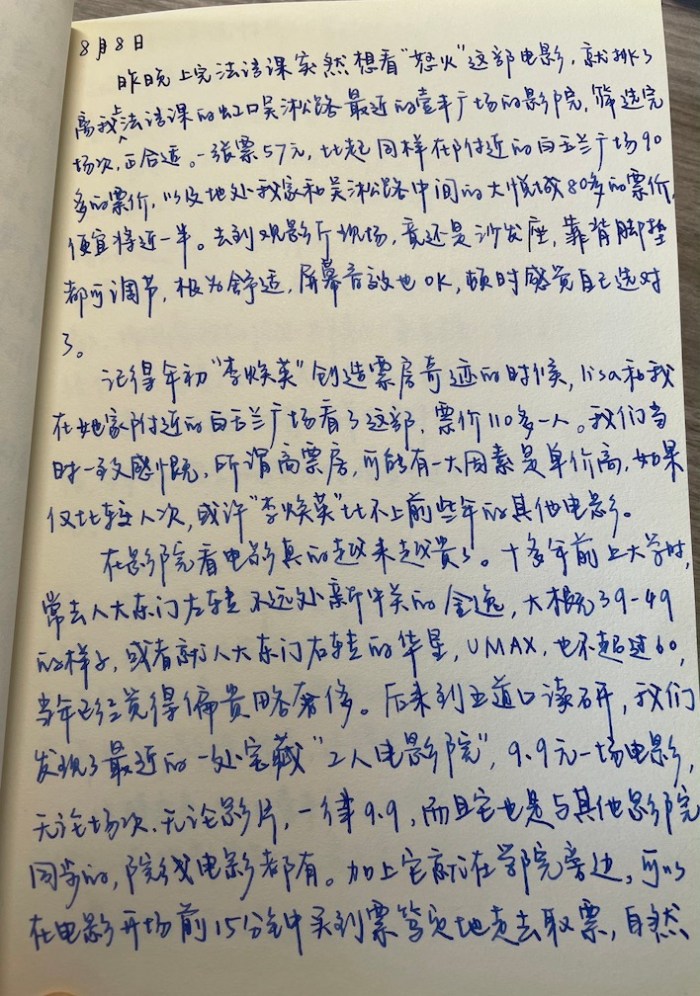 8月8日
昨晚上完法语课突然想看“怒火”这部电影，就排了
离我上法语课的虹口吴淞路最近的壹丰广场的影院，筛选完
场次，正合适。一张票57元，比起同样在附近的白玉兰广场90
多的票价，以及地处我家和吴淞路中间的大悦城80多的票价，
便宜将近一半。去到观影厅现场，竟还是沙发座，靠背脚垫
都可调节，极为舒适，屏幕音效也OK，顿时感觉自己选对
了。
记得年初“李焕英”创造票房奇迹的时候，lisa和我
在她家附近的白玉兰广场看了这部，票价110多一人。我们当
时一致感慨，所谓高票房，可能有一大因素是单价高，如果
仅比较人次，或许“李焕英”比不上前些年的其他电影。
在影院看电影真的越来越贵了。十多年前上大学时，
常去人大东门左转不远处新中关的金逸，大概39-49
的样子，或者就人大东门右转的华星，UMAX，也不超过60，
当年已经觉得偏贵略奢侈。后来到五道口读研，我们
发现了最近的一处宝藏“工人电影院”，9.9元一场电影，
无论场次、无论影片，一律9.9，而且它也是与其他影院
同步的，院线电影都有。加上它就在学院旁边，可以
在电影开场前15分钟中买到票笃定地走去取票，自然